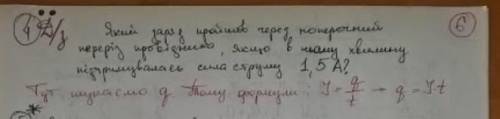 4 Д/з Який заряд пройшов через поперечний 6
переріз провідника, якщо в ньому хвилину
підтримувалась сила струму 1,5 А?
Тут шукаємо q Тому формули: I = q/t → q = I·t